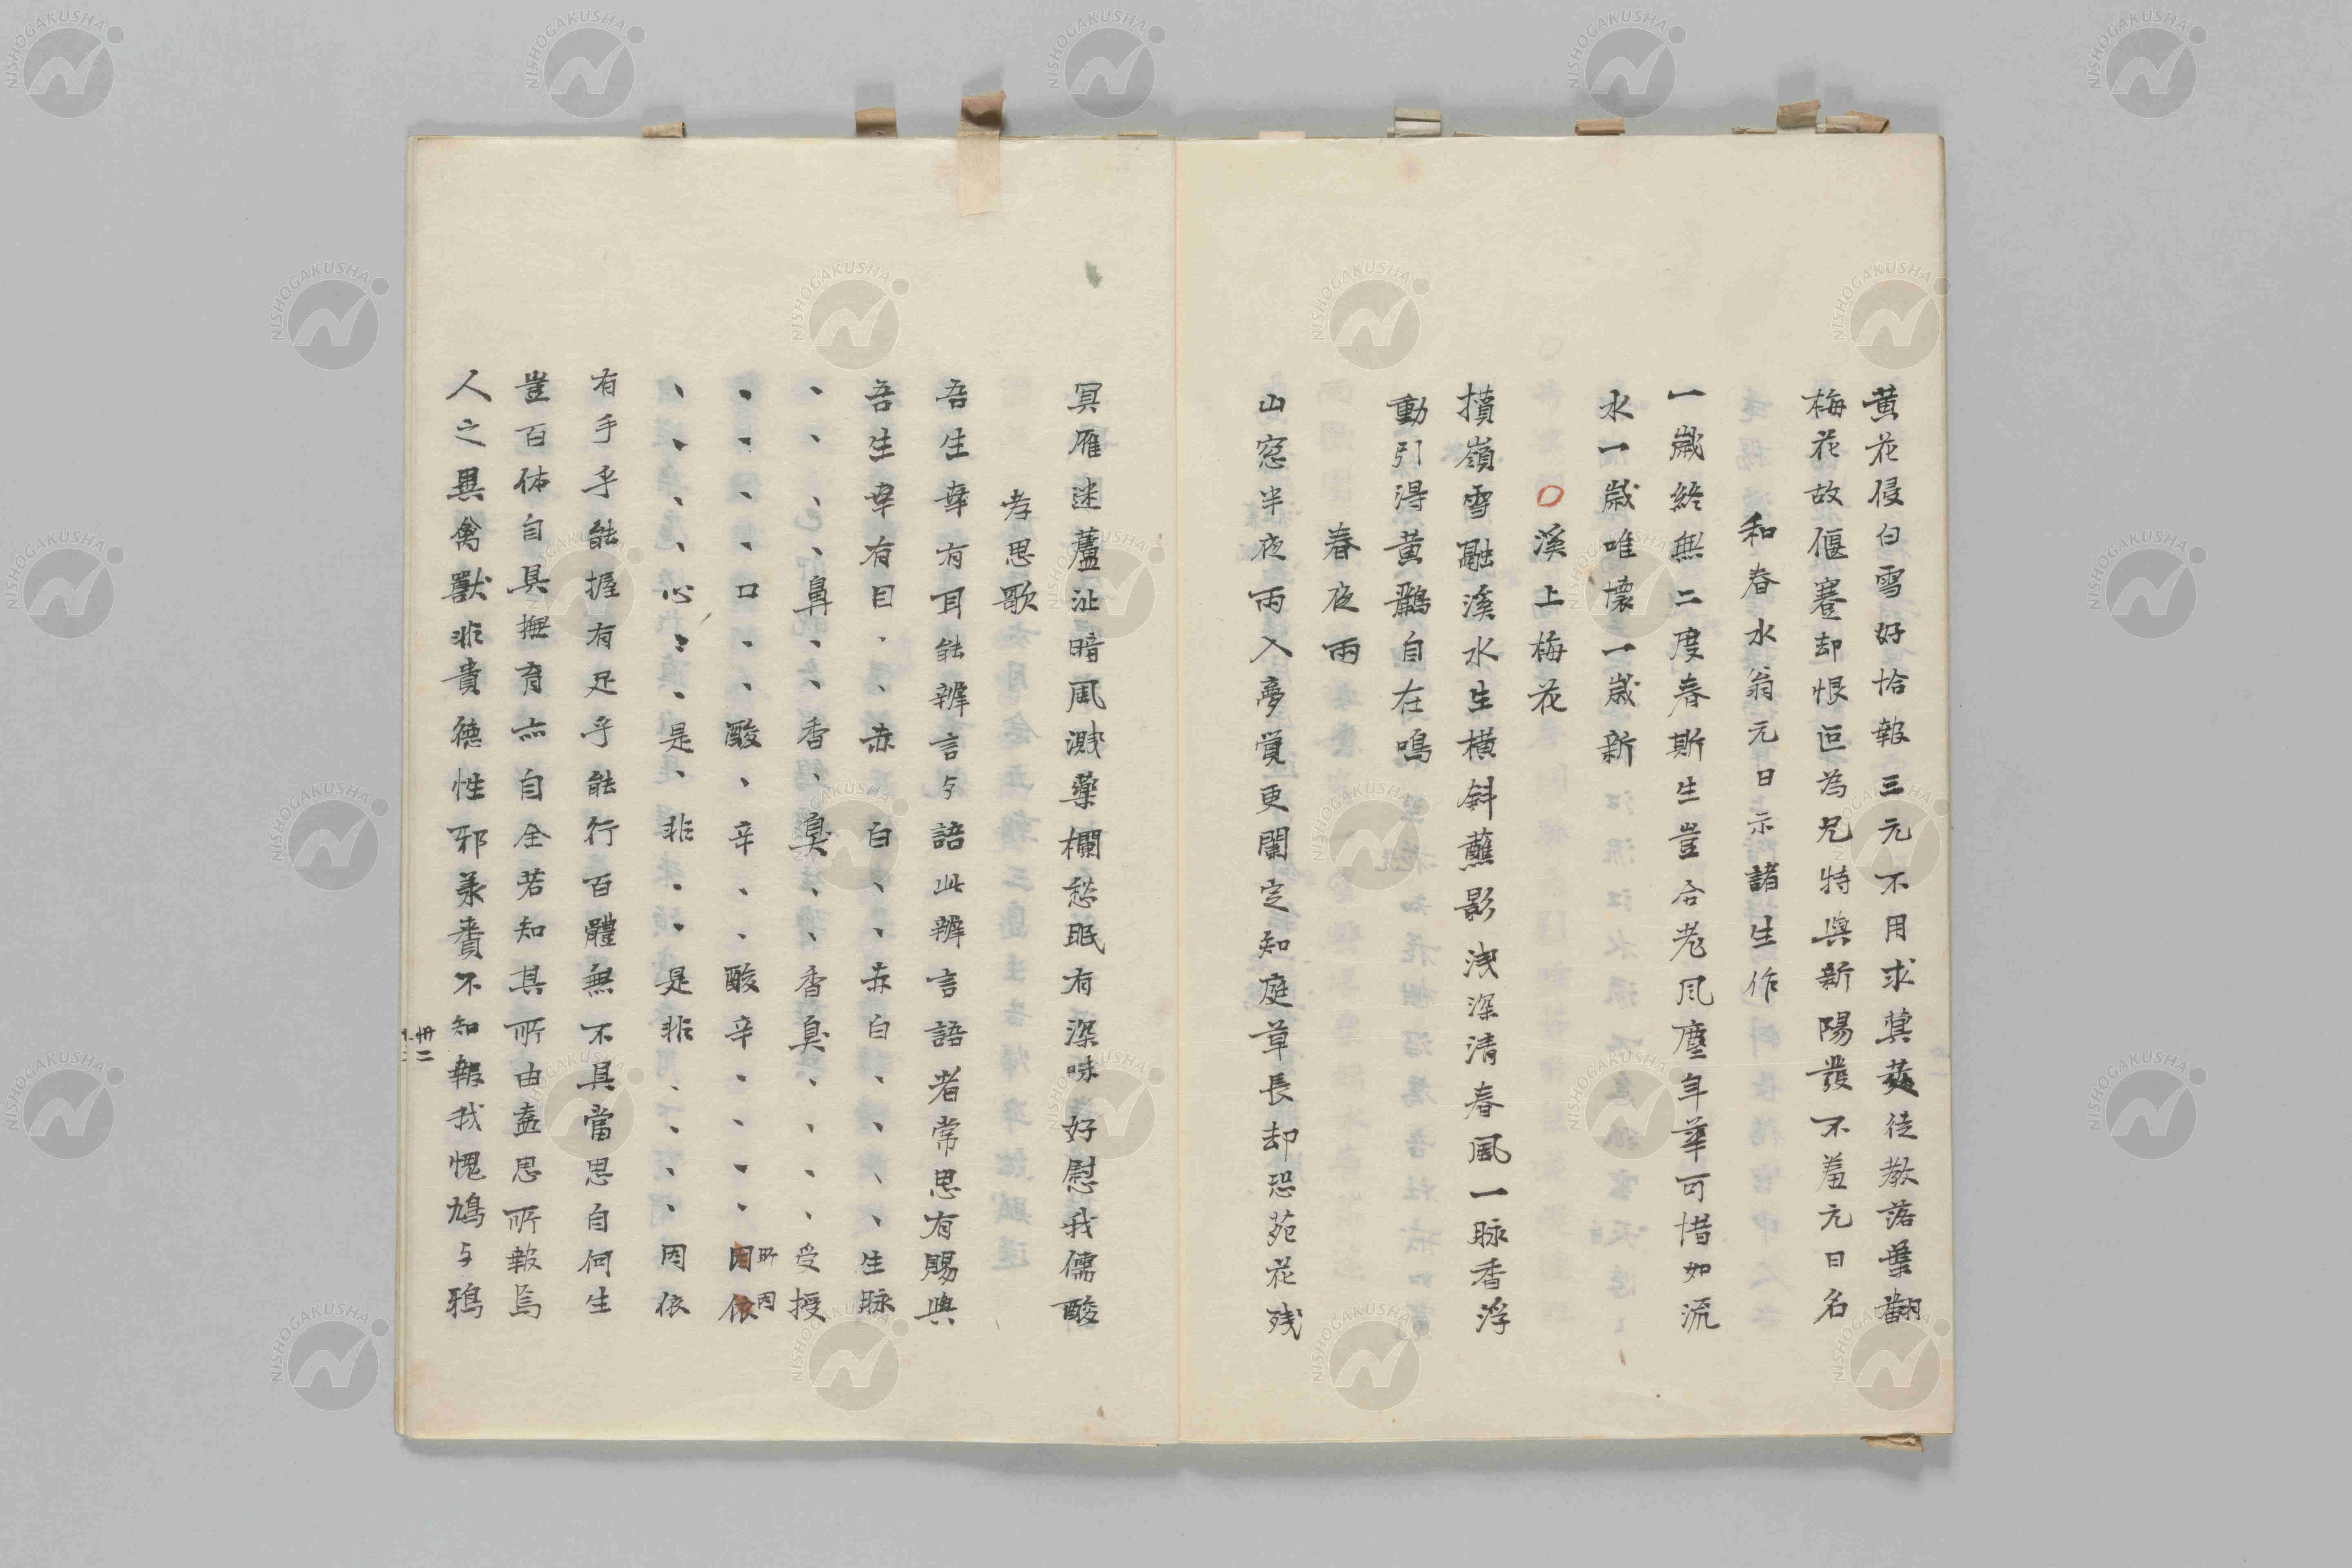 黄花侵白雪好恰報三元不用求蓂莢徒教落葉翻
梅花故偃蹇却恨迎為兄特與新陽發不羞元日名
和春水翁元日示諸生作
一歳終無二度春斯生豈合老風塵年華可惜如流
水一歳唯懐一歳新
○溪上梅花
嶺雪融溪水生横斜蘸影浅深清春風一脉香浮
動引得黄鸝自在鳴
春夜雨
山窓半夜雨入夢覚更闌定知庭草長却恐苑花残
冥雁迷蘆沚暗風濺藥欄愁眠有深味好慰我儒酸
孝思歌
吾生幸有耳能辨言与語此辨言語者常思有賜與
吾生幸有目、、赤、白、、赤白、、、、生脉
、、、、鼻、、香、臭、、香臭、、、、受授
、、、、口、、酸、辛、、酸辛、、、、因依
所因
、、、、心、、是、非、、是非、、、、因依
有手乎能握有足乎能行百體無不具當思自何生
豈百体自具撫育亦自全若知其所由盍思所報焉
人之異禽獣非貴徳性邪養不知報我愧鳩与鴉
卌二
NISHOGAKUSHA